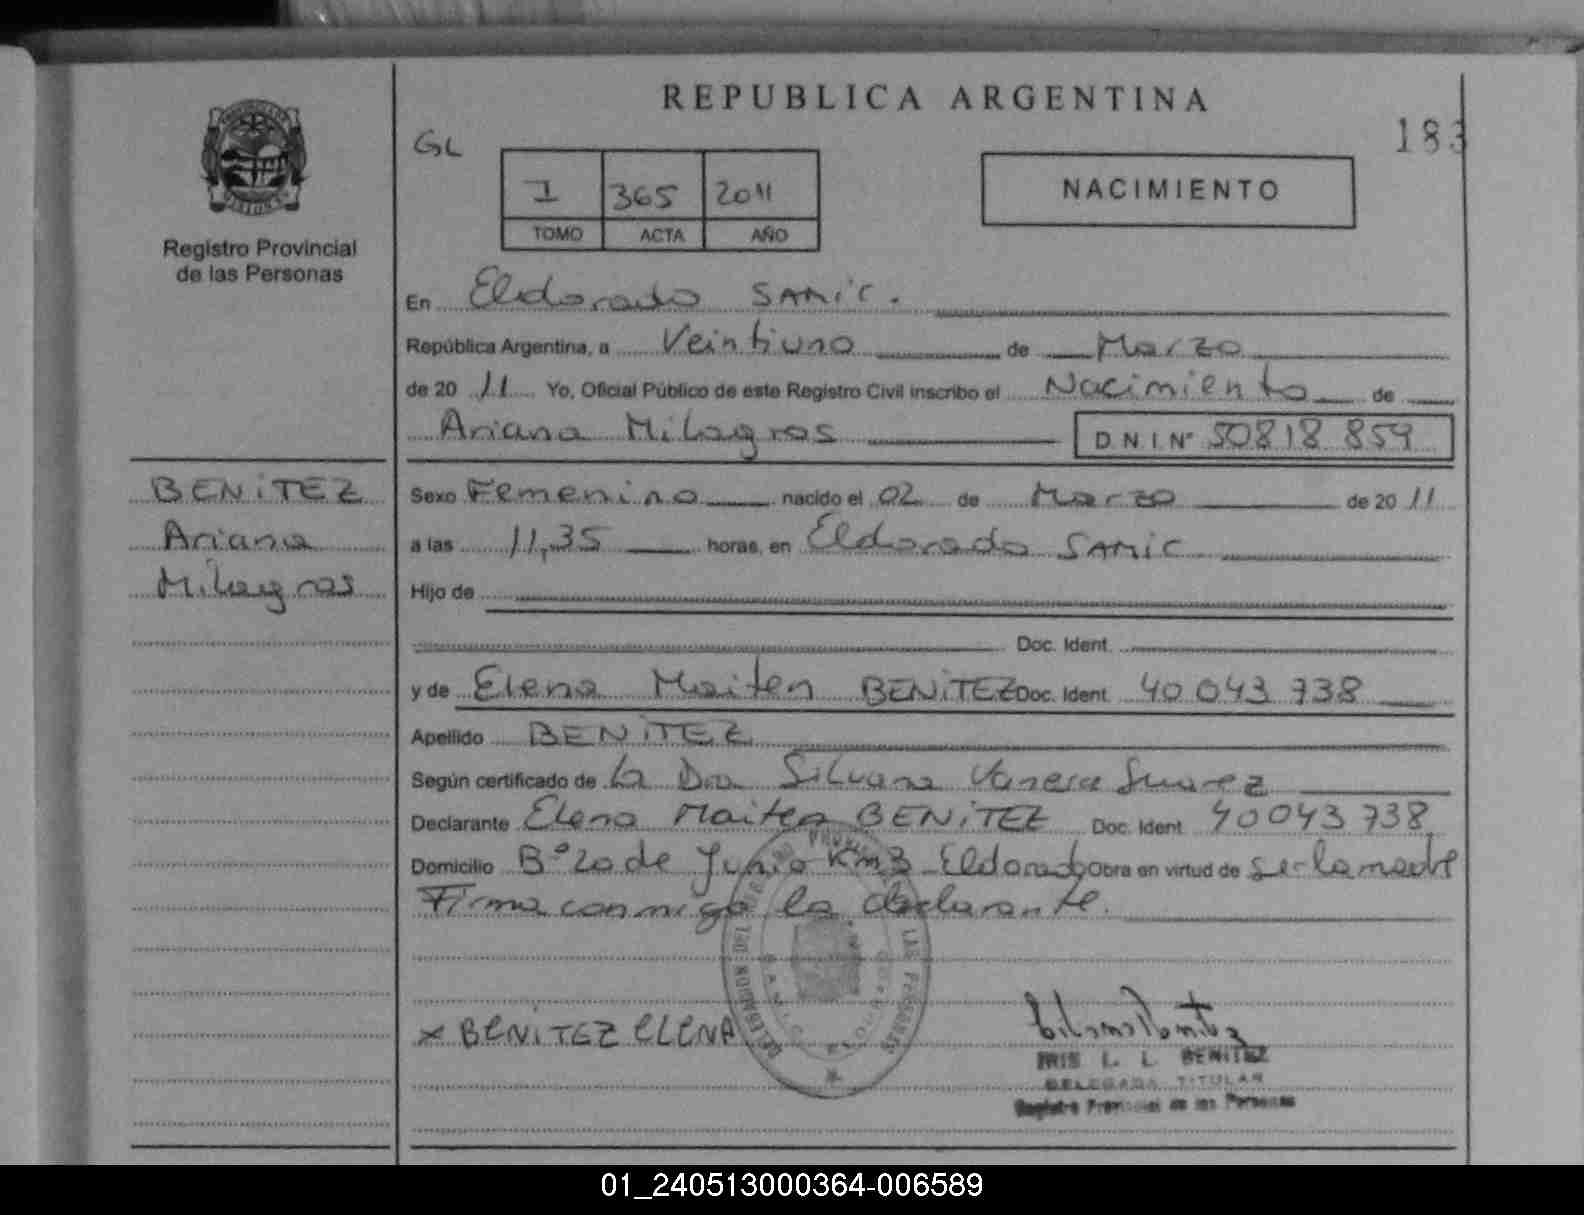 REPUBLICA ARGENTINA
183
GL
I 365 2011
TOMO ACTA AÑO
NACIMIENTO
Registro Provincial
de las Personas
En Eldorado SAMiC.
República Argentina, a Veintiuno de Marzo
de 20 11 Yo, Oficial Público de este Registro Civil inscribo el Nacimiento de
Ariana Milagros D.N.I.Nº 50818 859
BENiTEZ
Ariana
Milagros
Sexo Femenino nacido el 02 de Marzo de 20 11
a las 11,35 horas, en Eldorado SAMiC
Hijo de
Doc. Ident.
y de Elena Maiten BENiTEZ Doc. Ident. 40 043 738
Apellido BENiTEZ
Según certificado de La Dra Silvana Vanesa Suarez
Declarante Elena Maiten BENiTEZ Doc. Ident 40043 738
Domicilio Bº 20 de Junio Km3 Eldorado Obra en virtud de ser la madre
Firma conmigo la declarante.
x BENiTEZ ELENA
IRIS L. L. BENITEZ
DELEGADA TITULAR
Registro Provincial de las Personas
01_240513000364-006589